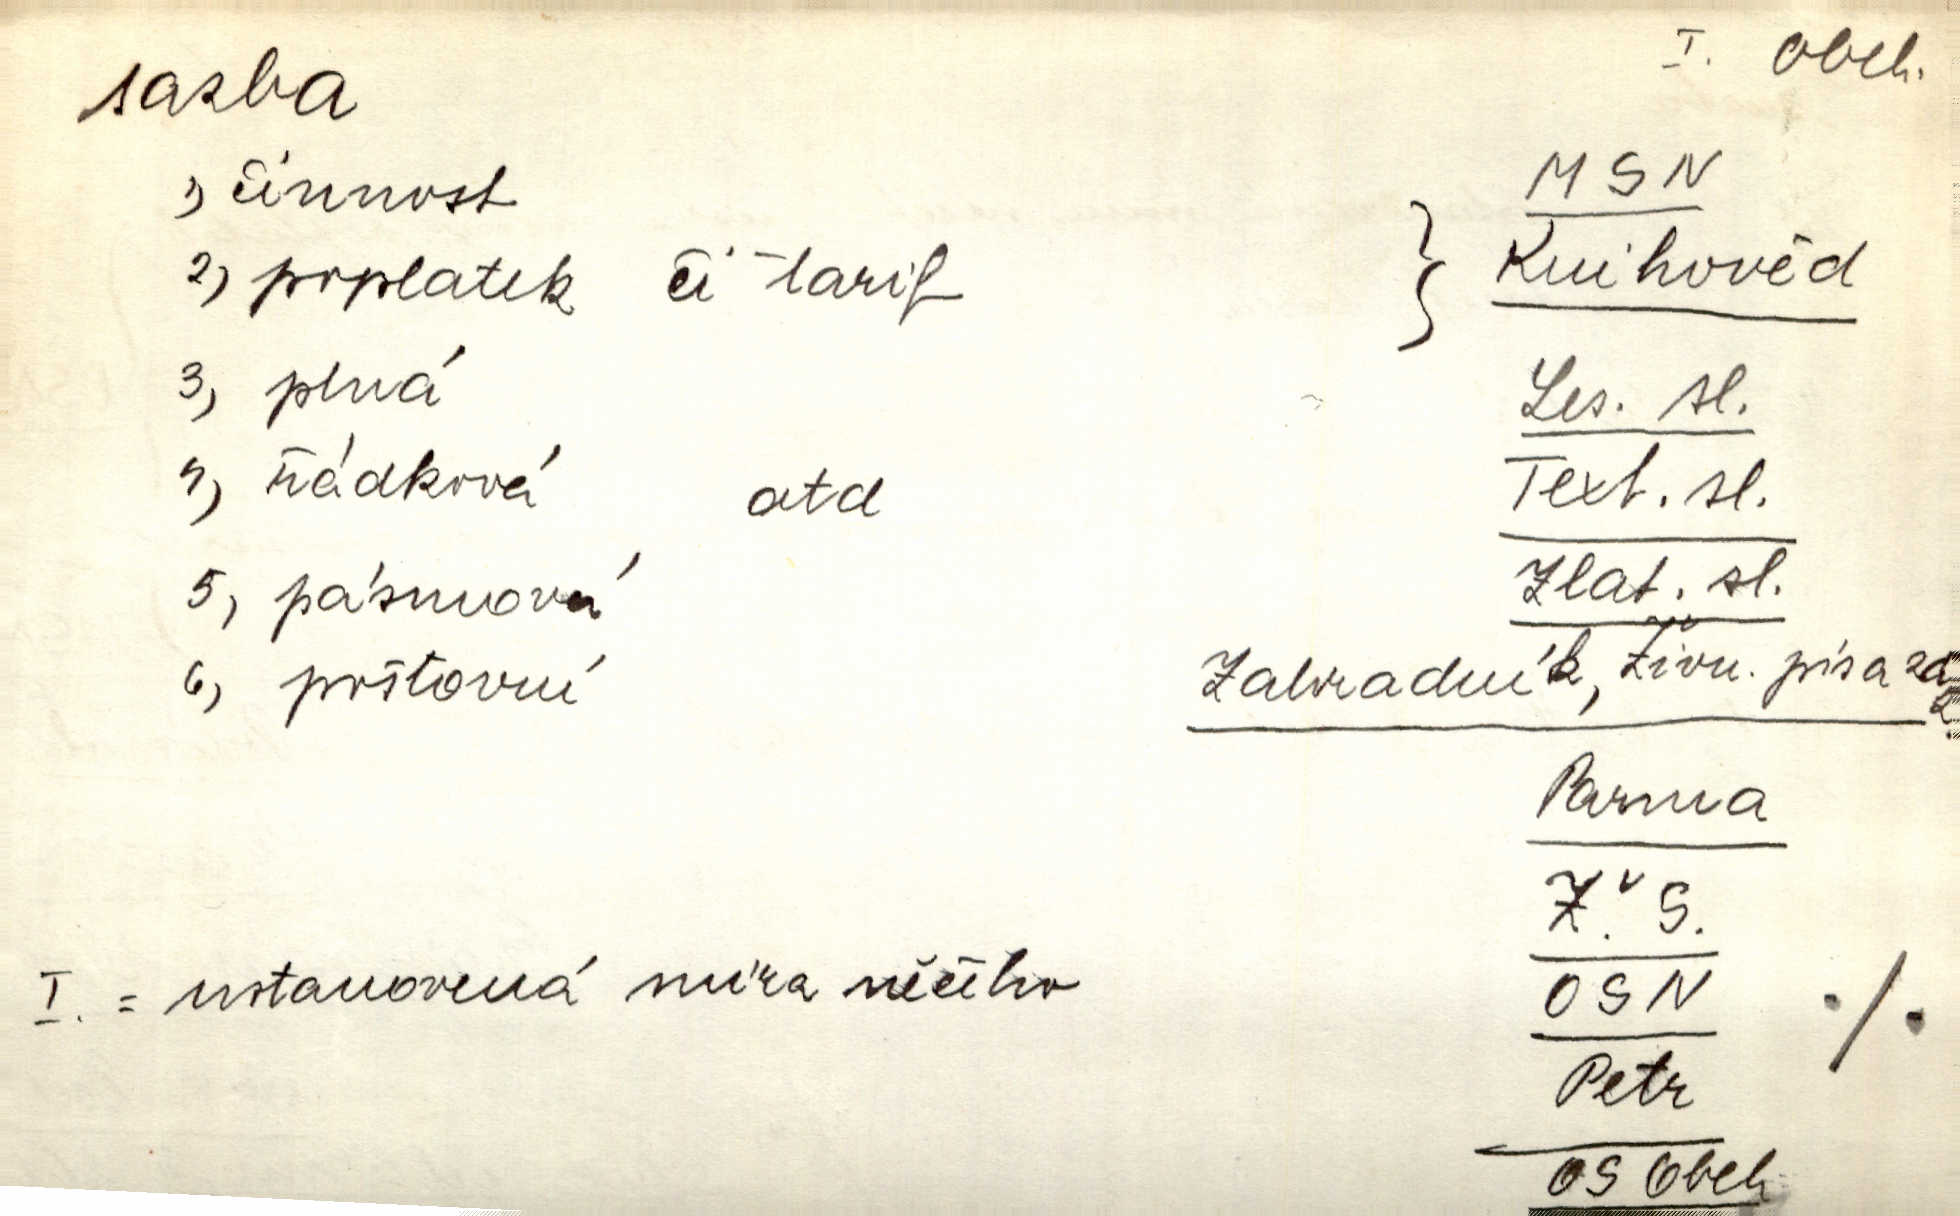 I. Obch.
sazba
1, činnost
2, poplatek či tarif
3, plná
4, řádková atd
5, pásmová
6, poštovní
I. = ustanovená míra něčeho
MSN
Knihověd
Les. sl.
Text. sl.
Zlat. sl.
Zahradník, Živn. písa
Parma
Ž. S.
OSN ./.
Petr
OS Obch